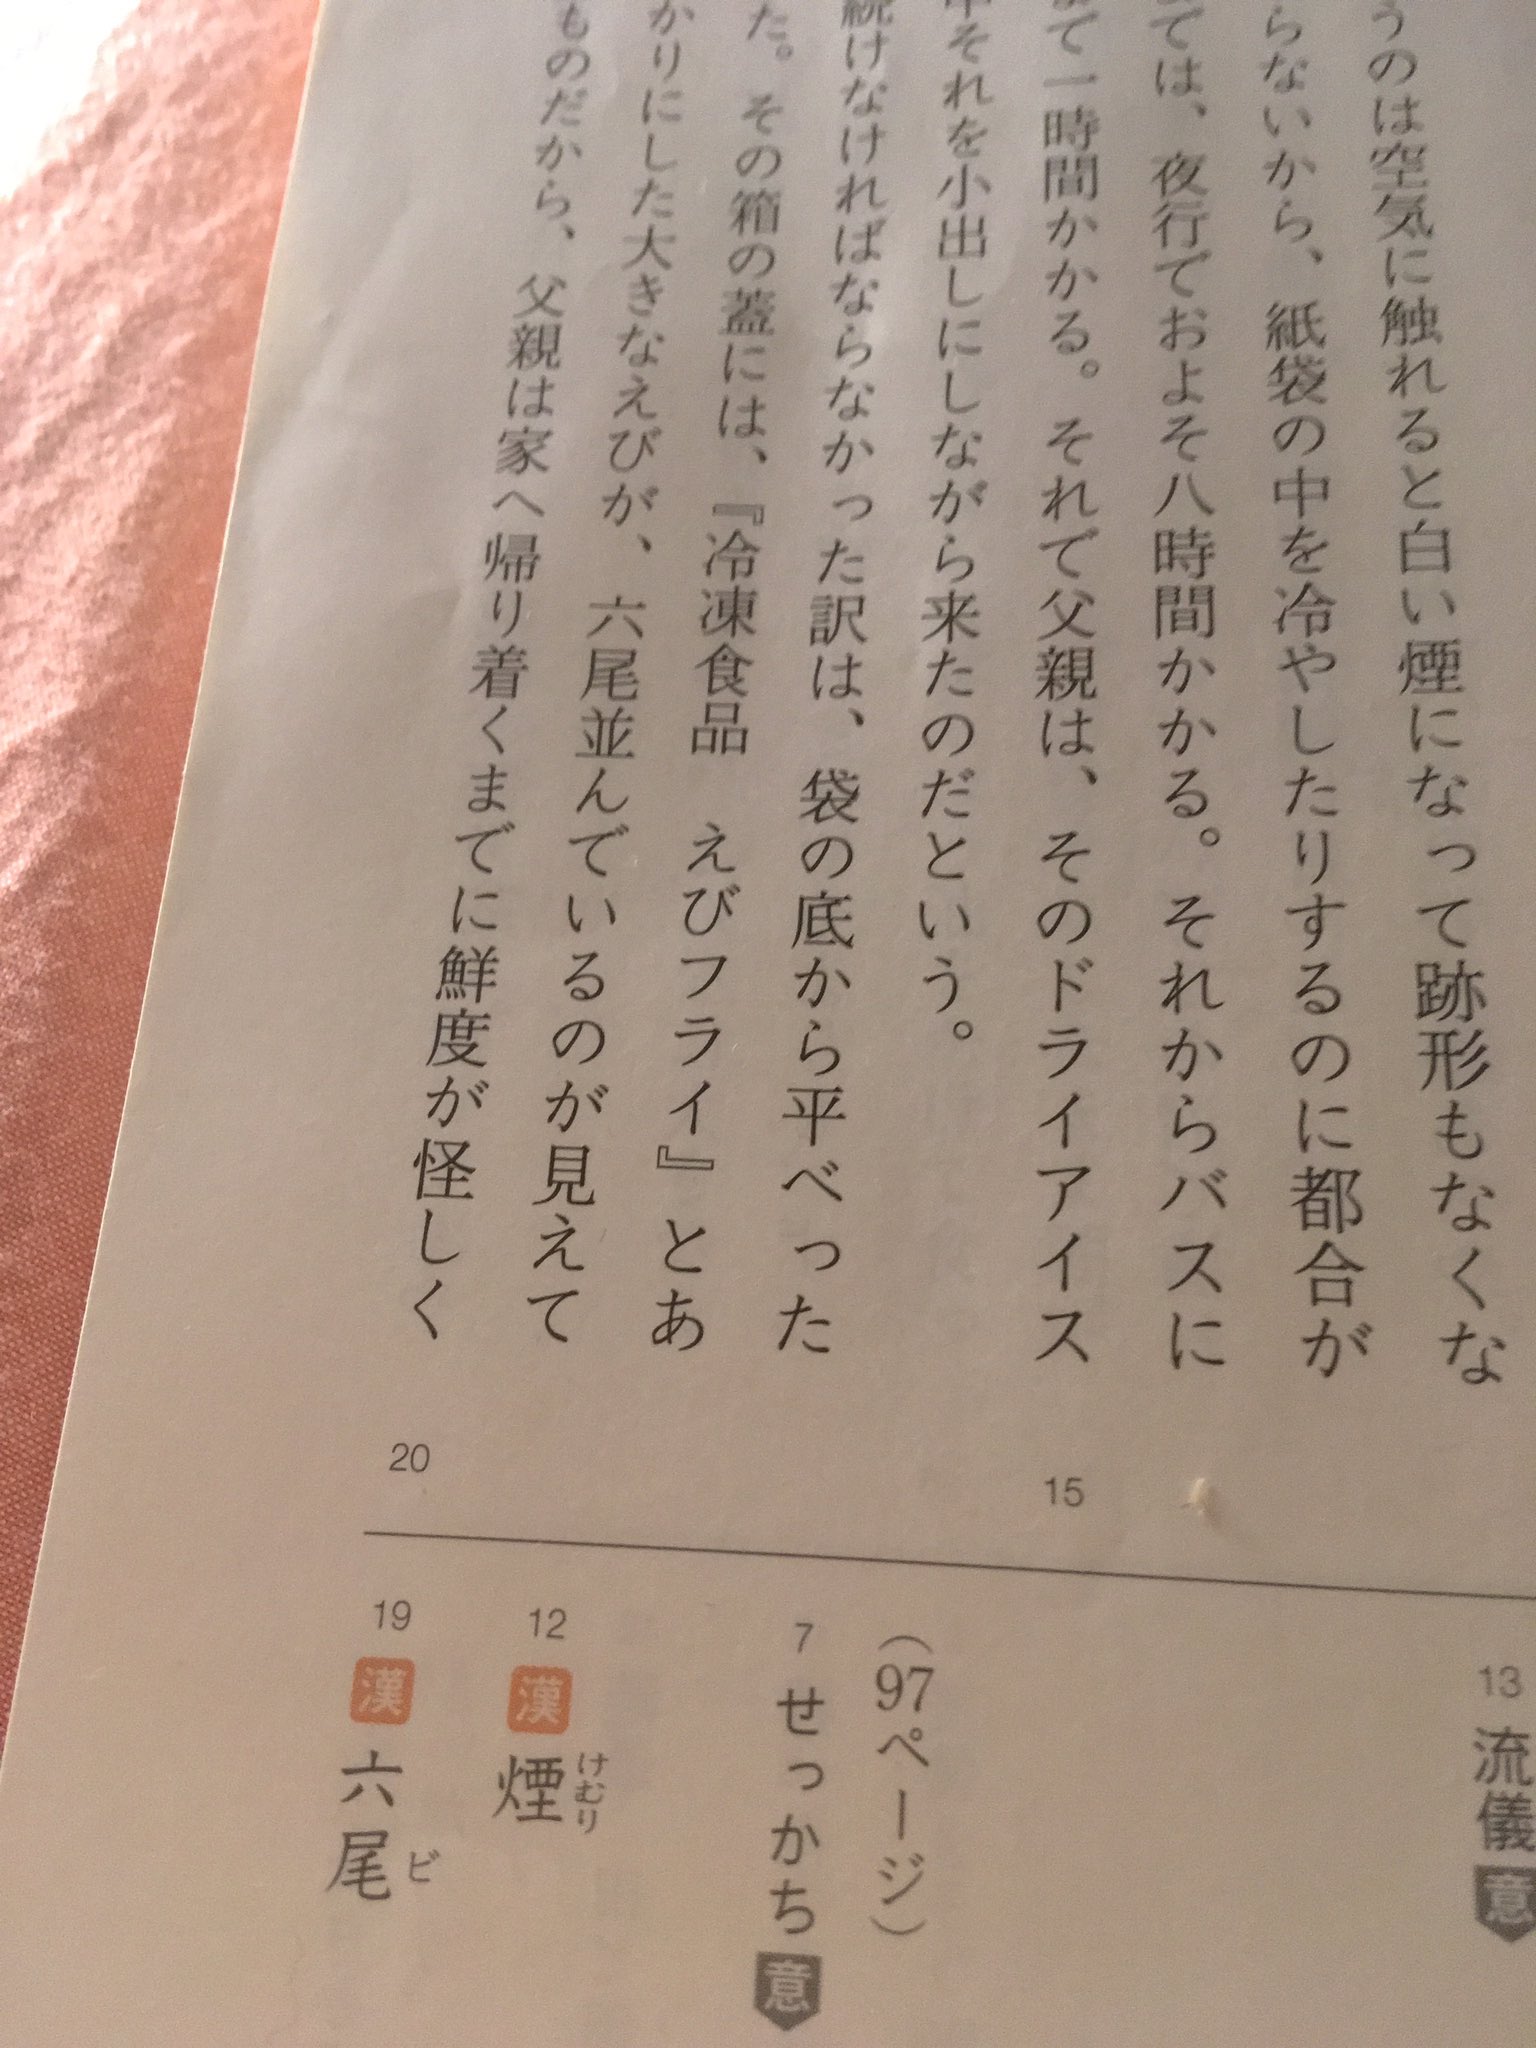 うのは空気に触れると白い煙になって跡形もなくな
らないから、紙袋の中を冷やしたりするのに都合が
ては、夜行でおよそ八時間かかる。それからバスに
て一時間かかる。それで父親は、そのドライアイス
中それを小出しにしながら来たのだという。
続けなければならなかった訳は、袋の底から平べった
た。その箱の蓋には、『冷凍食品　えびフライ』とあ
かりにした大きなえびが、六尾並んでいるのが見えて
ものだから、父親は家へ帰り着くまでに鮮度が怪しく
15
20
13 流儀 意
(97ページ)
7 せっかち 意
12 漢 煙 けむり
19 漢 六尾 ビ